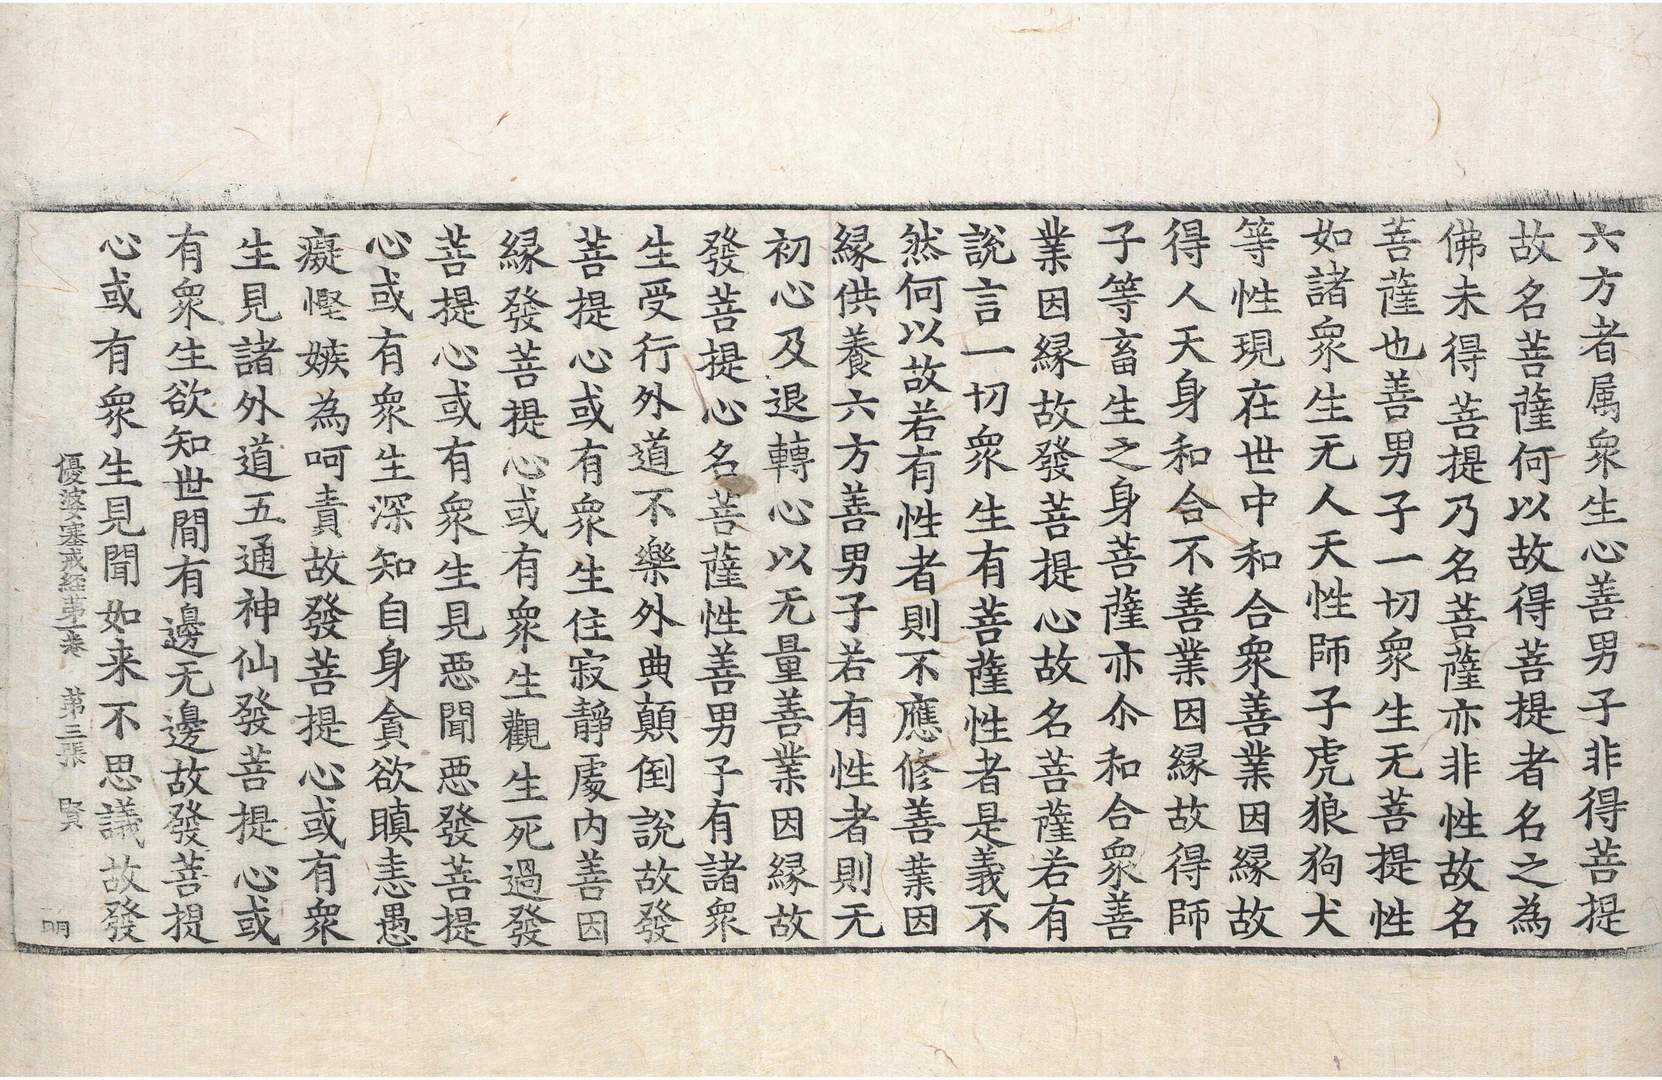 六方者属衆生心善男子非得菩提
故名菩薩何以故得菩提者名之為
佛未得菩提乃名菩薩亦非性故名
菩薩也善男子一切衆生无菩提性
如諸衆生无人天性師子虎狼狗犬
等性現在世中和合衆善業因縁故
得人天身和合不善業因縁故得師
子等畜生之身菩薩亦尒和合衆善
業因縁故發菩提心故名菩薩若有
說言一切衆生有菩薩性者是義不
然何以故若有性者則不應修善業因
縁供養六方善男子若有性者則无
初心及退轉心以无量善業因縁故
發菩提心名菩薩性善男子有諸衆
生受行外道不樂外典顛倒說故發
菩提心或有衆生住寂靜處内善因
縁發菩提心或有衆生觀生死過發
菩提心或有衆生見惡聞惡發菩提
心或有衆生深知自身貪欲瞋恚愚
癡慳嫉為呵責故發菩提心或有衆
生見諸外道五通神仙發菩提心或
有衆生欲知世間有邊无邊故發菩提
心或有衆生見聞如来不思議故發
優婆塞戒經第一卷 第三張 賢
明